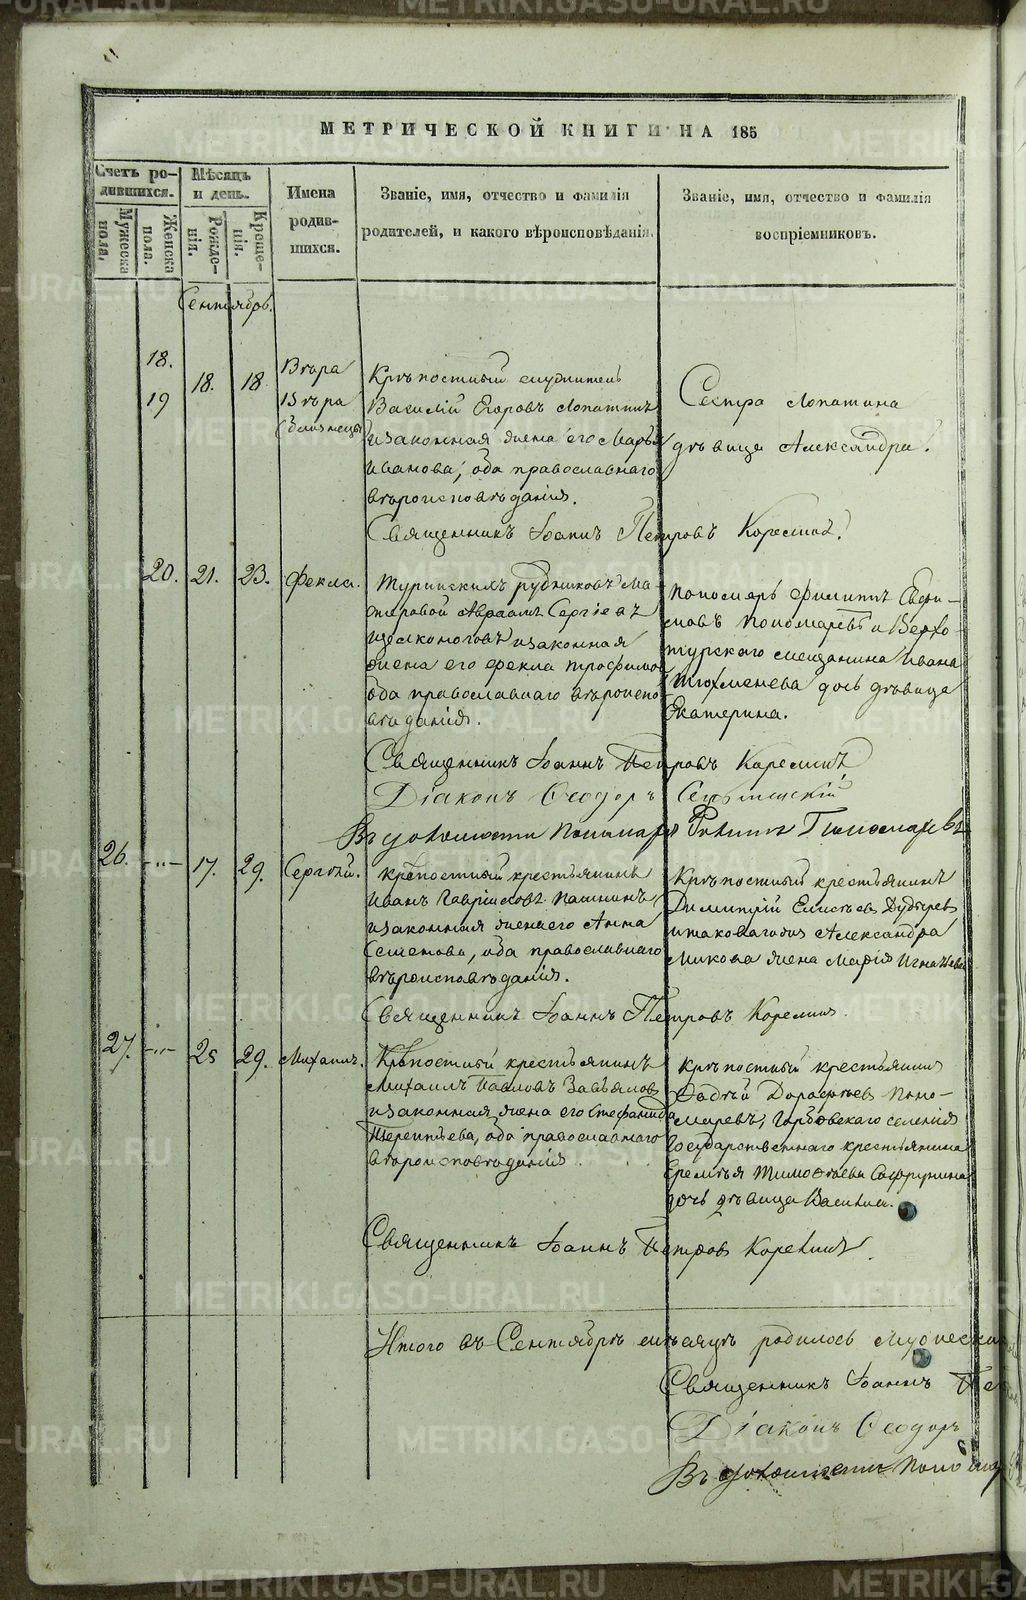 МЕТРИЧЕСКОЙ КНИГИ НА 185
Счетъ ро-
дившихся.
Мужеска
пола.
Женска
пола.
Мѣсяцъ
и день.
Рожде-
нія.
Креще-
нія.
Имена
родив-
шихся.
Званіе, имя, отчество и фамилія
родителей, и какого вѣроисповѣданія.
Званіе, имя, отчество и фамилія
воспріемниковъ.
Сентябрь.
18. 18. 18 Вѣра
19 Вѣра
(близнецы)
Крѣпостный служитель
Василій Егоровъ Лопатинъ
и законная жена его Марья
Иванова, оба православнаго
вѣроисповѣданія.
Сестра Лопатина
дѣвица Александра.
Священникъ Іоаннъ Петровъ
20. 21. 23. Фекла.
Туринскихъ рудниковъ ма-
стеровой Авраамъ Сергіевъ
и законная
жена его Фекла Трофимова
оба православнаго вѣроиспо-
вѣданія.
Пономарь Филиппъ
Пономаревъ и Верхо-
турскаго мещанина Ивана
Тюхменева дочь дѣвица
Екатерина.
Священникъ Іоаннъ Петровъ
Діаконъ Ѳеодоръ
Въ должности Пономаря Филиппъ Пономаревъ
26. -"- 17. 29. Сергѣй.
Крѣпостный крестьянинъ
Иванъ Гавріиловъ Пашнинъ
и законная жена его Анна
Семенова, оба православнаго
вѣроисповѣданія.
Крѣпостный крестьянинъ
Димитрій Елисѣевъ
и таковагожъ Александра
жена Марія Игнатьева
Священникъ Іоаннъ Петровъ
27. -"- 25 29. Михаилъ.
Крѣпостный крестьянинъ
Михаилъ Павловъ Завьяловъ
и законная жена его Стефанида
Терентьева, оба православнаго
вѣроисповѣданія.
Крѣпостный крестьянинъ
Фадѣй Дорофѣевъ Поно-
маревъ, селенія
Государственнаго крестьянина
Еремѣя Тимоѳѣева
дочь дѣвица
Священникъ Іоаннъ Петровъ
Итого въ Сентябрѣ мѣсяцѣ родилось мужеска
Священникъ Іоаннъ Пе
Діаконъ Ѳеодоръ
Въ должности Поно
METRIKI.GASO-URAL.RU